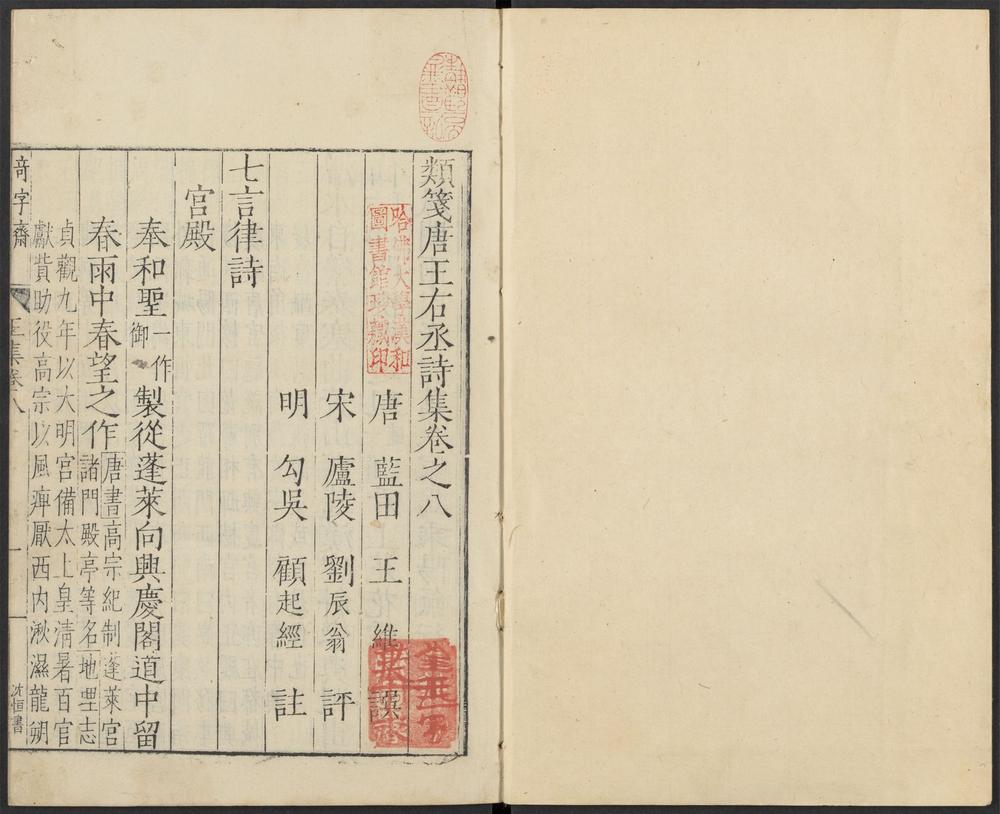 類箋唐王右丞詩集卷之八
唐 藍田 王維 譔
宋 廬陵 劉辰翁 評
明 勾吳 顧起經 註
七言律詩
宮殿
奉和聖一作御製從蓬萊向興慶閣道中留
春雨中春望之作唐書高宗紀制蓬萊宮
諸門殿亭等名地理志
貞觀九年以大明宮備太上皇清暑百官
獻貲助役高宗以風痺厭西内湫濕龍朔
竒字齋
集卷八
一
沈恒書
哈佛大學漢和
圖書館珍藏印